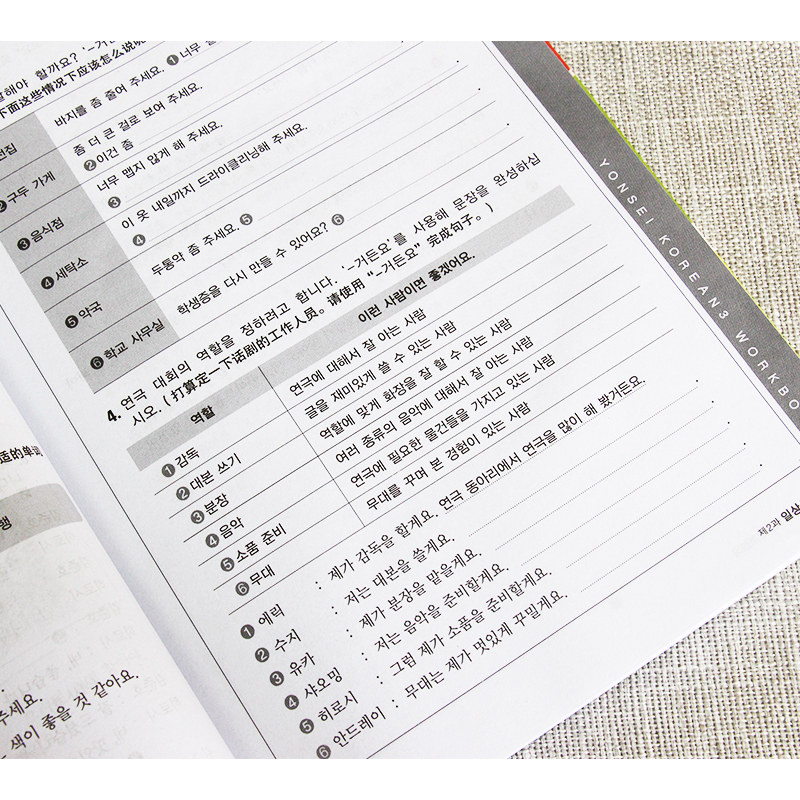 말해야 할까요? '–거든요
下面这些情况下应该怎么说呢
바지를 좀 줄여 주세요. ❶너무
좀 더 큰 걸로 보여 주세요.
❷구두 가게 ❷이건 좀
너무 맵지 않게 해 주세요.
❸음식점 ❸
이 옷 내일까지 드라이클리닝해 주세요.
❹세탁소 ❹
❺약국 두통약 좀 주세요. ❺
❻학교 사무실 학생증을 다시 만들 수 있어요? ❻
4. 연극 대회의 역할을 정하려고 합니다. '–거든요'를 사용해 문장을 완성하십
시오. (打算定一下话剧的工作人员。请使用 "–거든요" 完成句子。)
역할 이런 사람이면 좋겠어요.
❶감독 연극에 대해서 잘 아는 사람
❷대본 쓰기 글을 재미있게 쓸 수 있는 사람
❸분장 역할에 맞게 화장을 잘 할 수 있는 사람
❹음악 여러 종류의 음악에 대해서 잘 아는 사람
❺소품 준비 연극에 필요한 물건들을 가지고 있는 사람
❻무대 무대를 꾸며 본 경험이 있는 사람
❶ 에릭 : 제가 감독을 할게요. 연극 동아리에서 연극을 많이 해 봤거든요.
❷ 수지 : 저는 대본을 쓸게요.
❸ 유카 : 제가 분장을 맡을게요.
❹ 샤오밍 : 저는 음악을 준비할게요.
❺ 히로시 : 그럼 제가 소품을 준비할게요.
❻ 안드레이 : 무대는 제가 멋있게 꾸밀게요.
제2과 일상
YONSEI KOREAN3 WORKBO
适的单词
행
주세요.
색이 좋을 것 같아요.